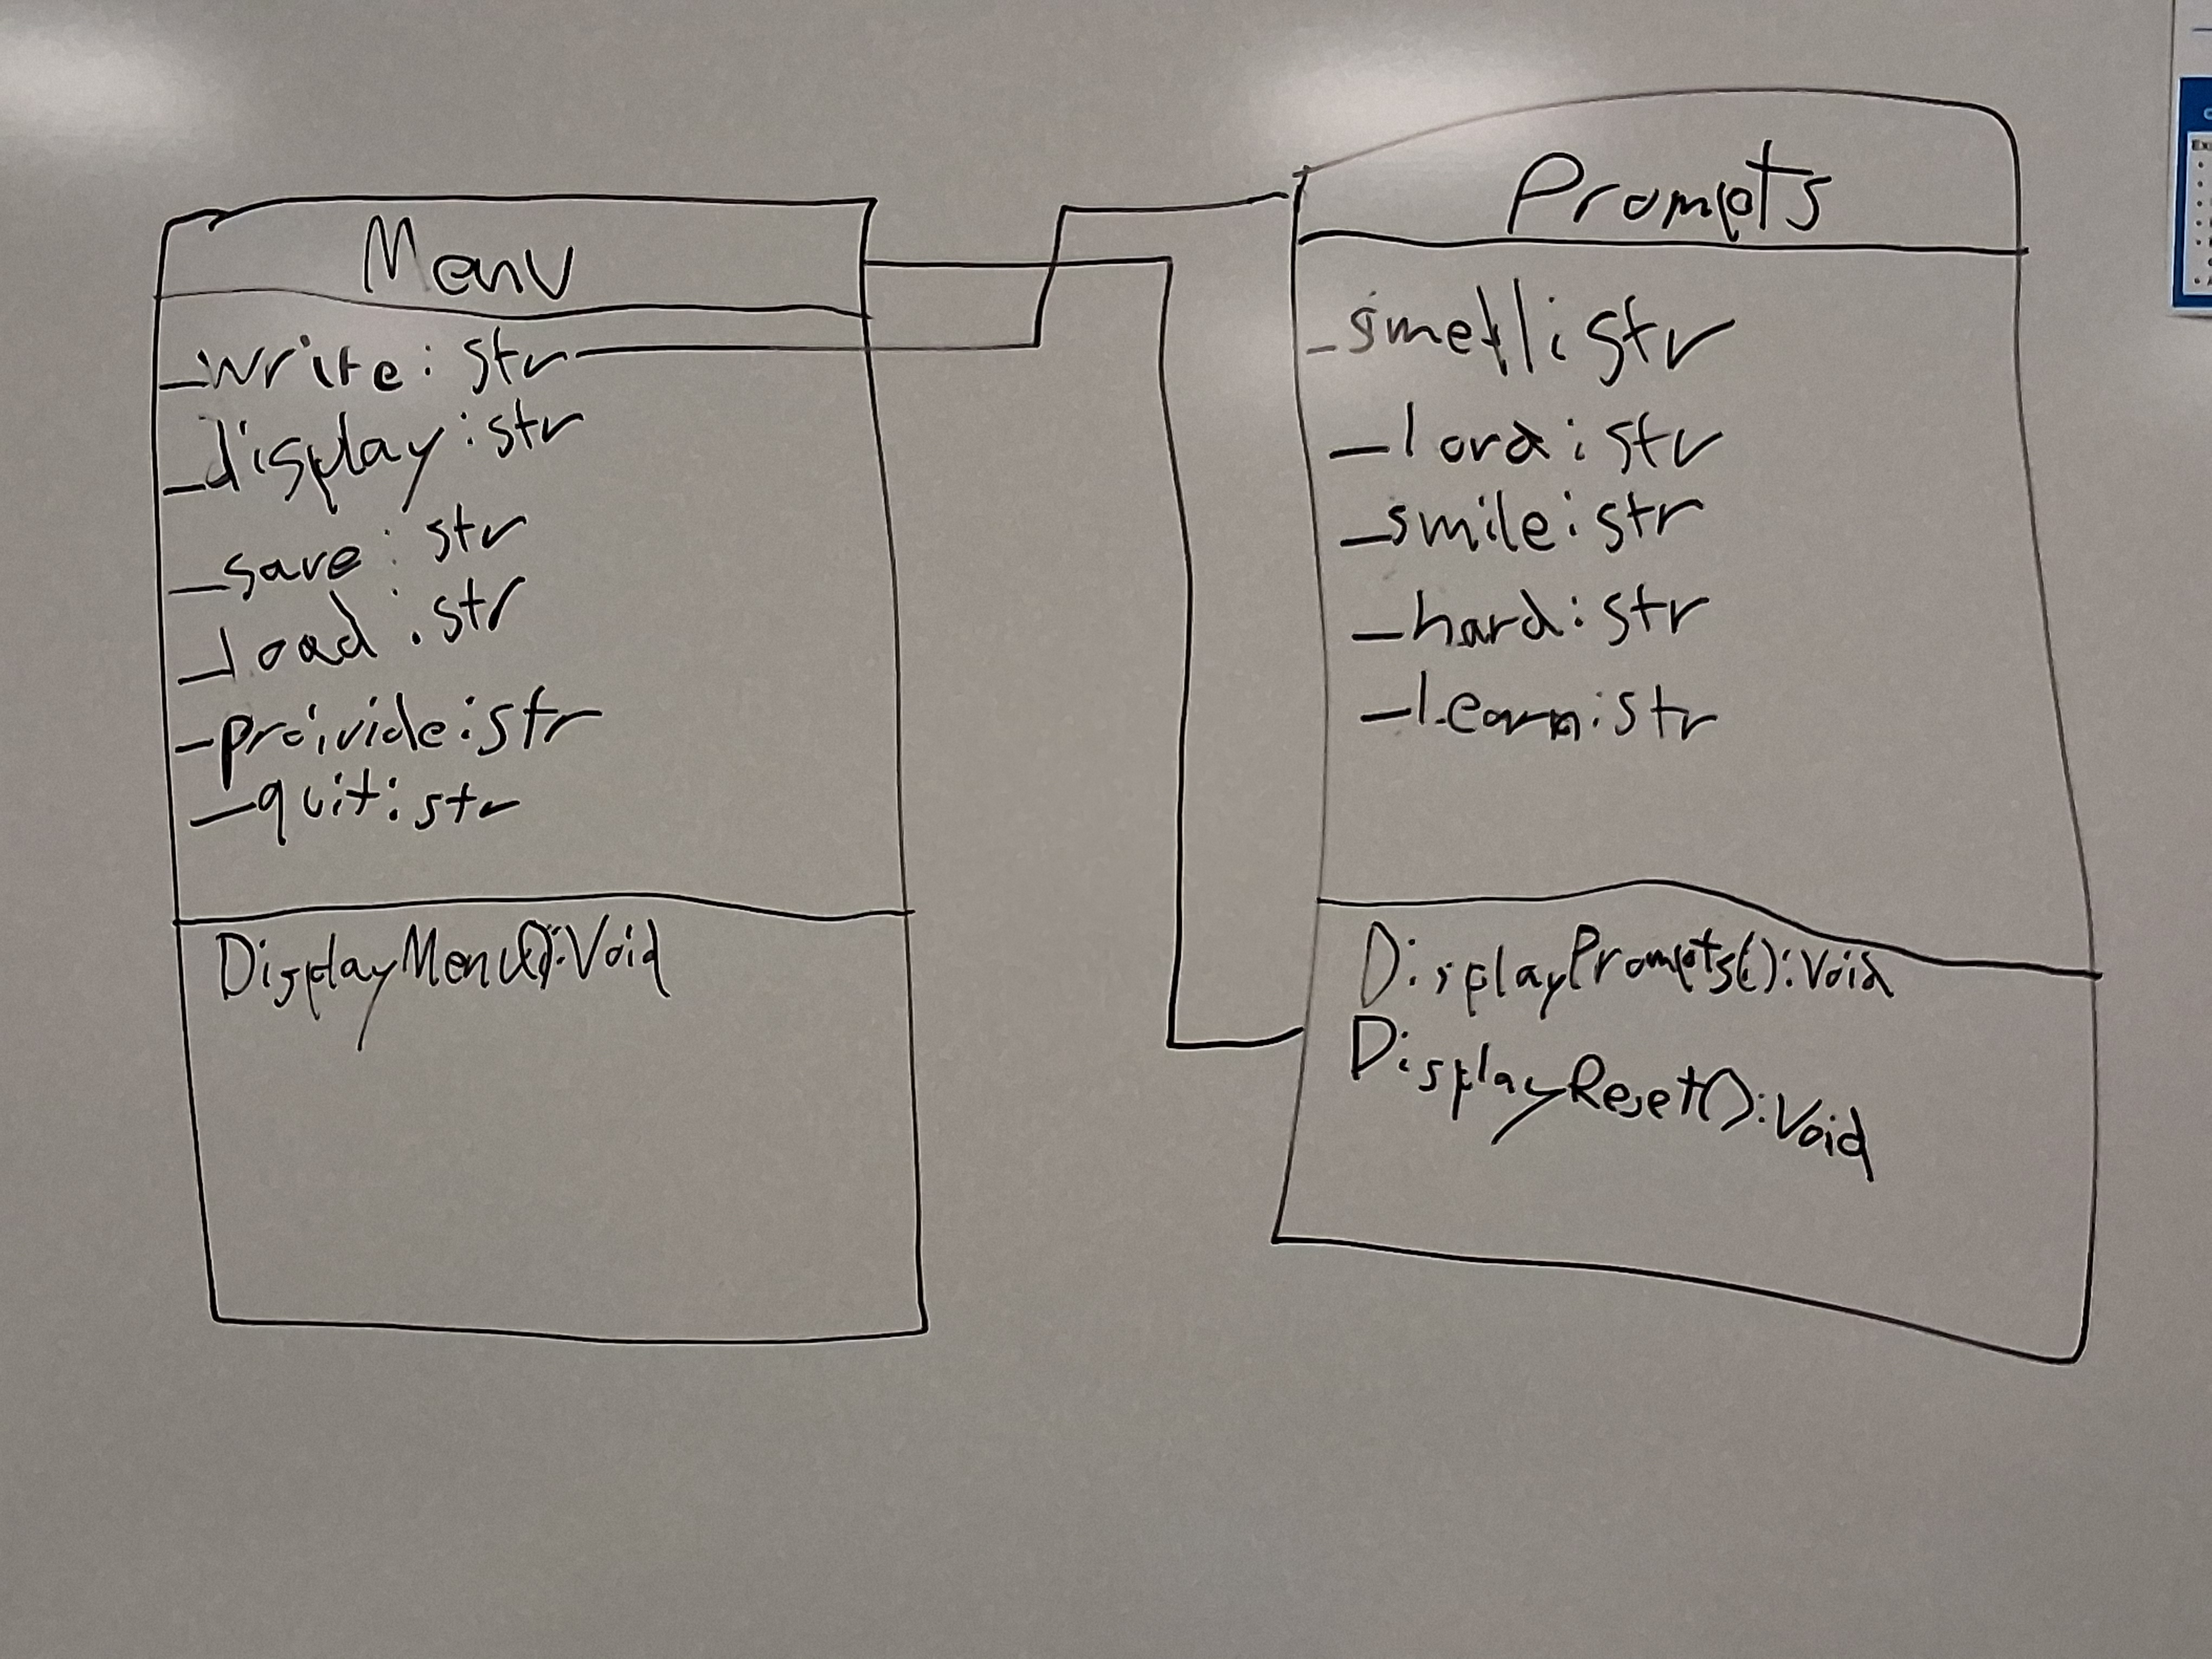 Menu
_write: str
_display: str
_save: str
_load: str
_proivide: str
_quit: str
DisplayMenu(): Void
Prompts
: str
_lord: str
_smile: str
_hard: str
_learn: str
DisplayPrompts(): Void
DisplayReset(): Void